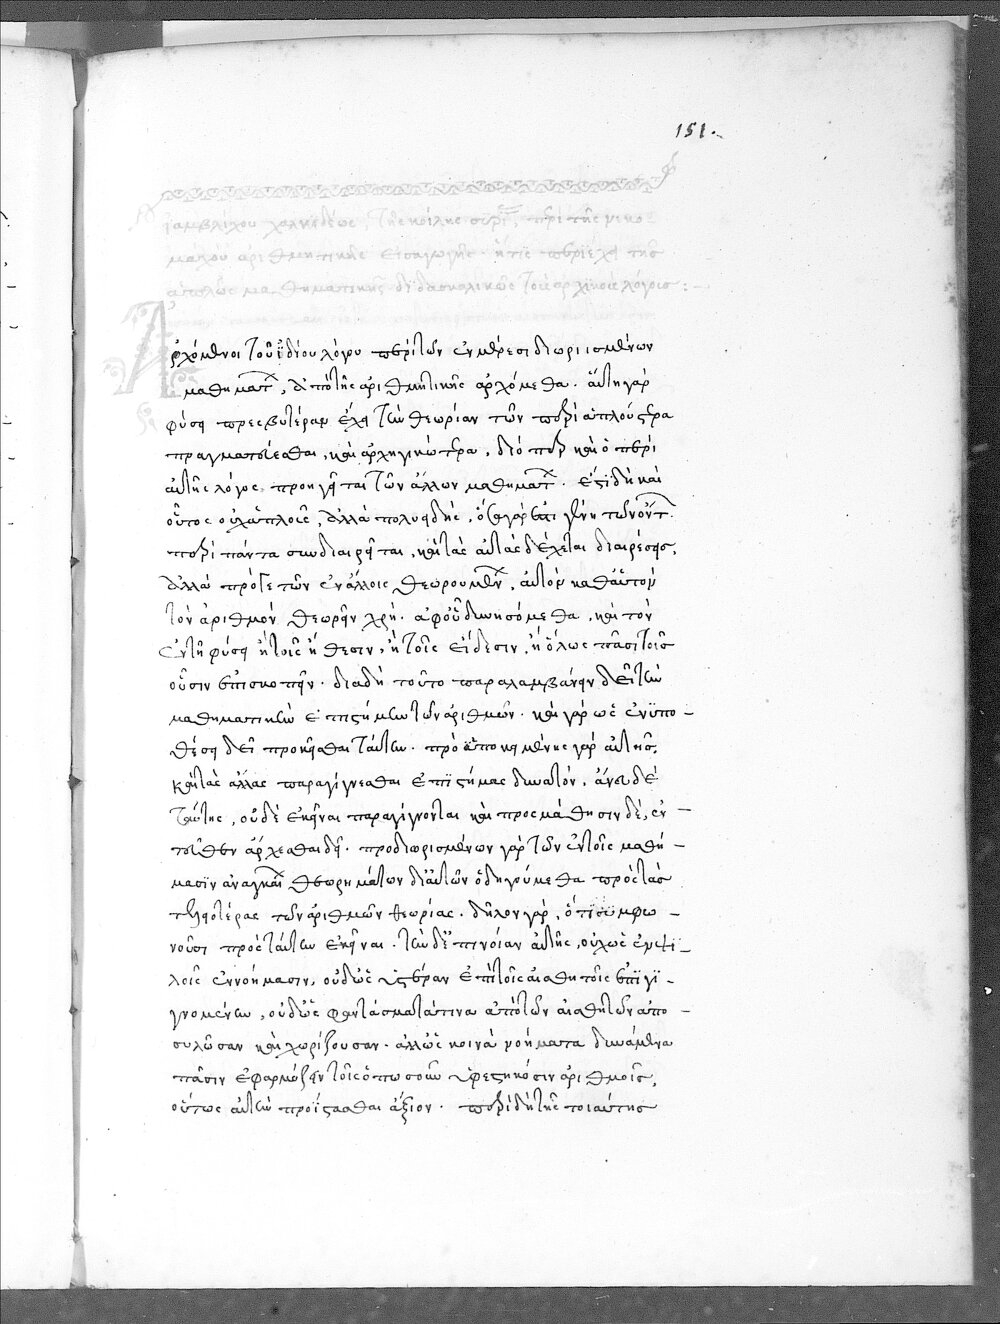 151.
ἰαμβλίχου χαλκιδέως, τῆς κοίλης συρί, περὶ τῆς νικο
μάχου ἀριθμητικῆς εἰσαγωγῆς. ἥτις περιέχει τῆς
ἁπλῶς μαθηματικῆς διδασκαλικῶς τοὺς ἀρχικοὺς λόγους :-
Ἀρχόμενοι τοῦ ἰδίου λόγου περὶ τῶν ἐν μέρεσι διωρισμένων
μαθηματ, ἀπὸ τῆς ἀριθμητικῆς ἀρχόμεθα. αὕτη γὰρ
φύσει πρεσβυτέραν ἔχει τὴν θεωρίαν τῶν περὶ ἁπλούστερα
πραγματεύεσθαι, καὶ ἀρχηγικώτερα, διόπερ καὶ ὁ περὶ
αὐτῆς λόγος, προηγεῖται τῶν ἄλλων μαθηματ. ἔστι δὴ καὶ
οὗτος οὐχ ἁπλοῦς, ἀλλὰ πολυειδής, ὅσα γάρ ἐστι γένη τῶν ὄντ.
περὶ πάντα συνδιαιρεῖται, καὶ τὰς αὐτὰς δέχεται διαιρέσεις,
ἀλλὰ πρός γε τῶν ἐν ἄλλοις θεωρουμέν, αὐτὸν καθ᾽ αὑτὸν
τὸν ἀριθμὸν θεωρεῖν χρή. ἀφ᾽ οὗ δυνησόμεθα, καὶ τὸν
ἐν τῇ φύσει ἢ τοῖς ἤθεσιν, ἢ τοῖς εἴδεσιν, ἢ ὅλως πᾶσι τοῖς
οὖσιν ἐπισκοπεῖν. διὰ δὴ τοῦτο παραλαμβάνειν δεῖ τὴν
μαθηματικὴν ἐπιστήμην τῶν ἀριθμῶν. καὶ γὰρ ὡς ἐν ὑπο-
θέσει δεῖ προκεῖσθαι ταύτην. πρὸ ὑποκειμένης γὰρ αὐτῆς,
καὶ τὰς ἄλλας παραγίγνεσθαι ἐπιστήμας δυνατόν. ἄνευ δὲ
ταύτης, οὐδὲ ἐκεῖναι παραγίγνονται καὶ πρὸς μάθησιν δέ, ἐν-
τεῦθεν ἄρχεσθαι δεῖ. προδιωρισμένων γὰρ τῶν ἐν τοῖς μαθή-
μασιν ἀναγκαί θεωρημάτων δι᾽ αὐτῶν ὁδηγούμεθα πρὸς τὰς
τελειοτέρας τῶν ἀριθμῶν θεωρίας. δῆλον γάρ, ὅτι συμφω-
νοῦσι πρὸς ταύτην ἐκεῖναι. τὴν δὲ ἐπίνοιαν αὐτῆς, οὐχ ὡς ἐν ψι-
λοῖς ἐννοήμασιν, οὐδ᾽ ὡς ὑστέραν ἐπὶ τοῖς αἰσθητοῖς ἐπιγι-
γνομένην, οὐδ᾽ ὡς φαντάσματά τινα ἀπὸ τῶν αἰσθητῶν ἀπο-
συλῶσαν καὶ χωρίζουσαν. ἀλλ᾽ ὡς κοινὰ νοήματα δυνάμενα
πᾶσιν ἐφαρμόζειν τοῖς ὁπωσοῦν ὑφεστηκόσιν ἀριθμοῖς,
οὕτως αὐτὴν προΐστασθαι ἄξιον. περὶ δὴ τῆς τοιαύτης